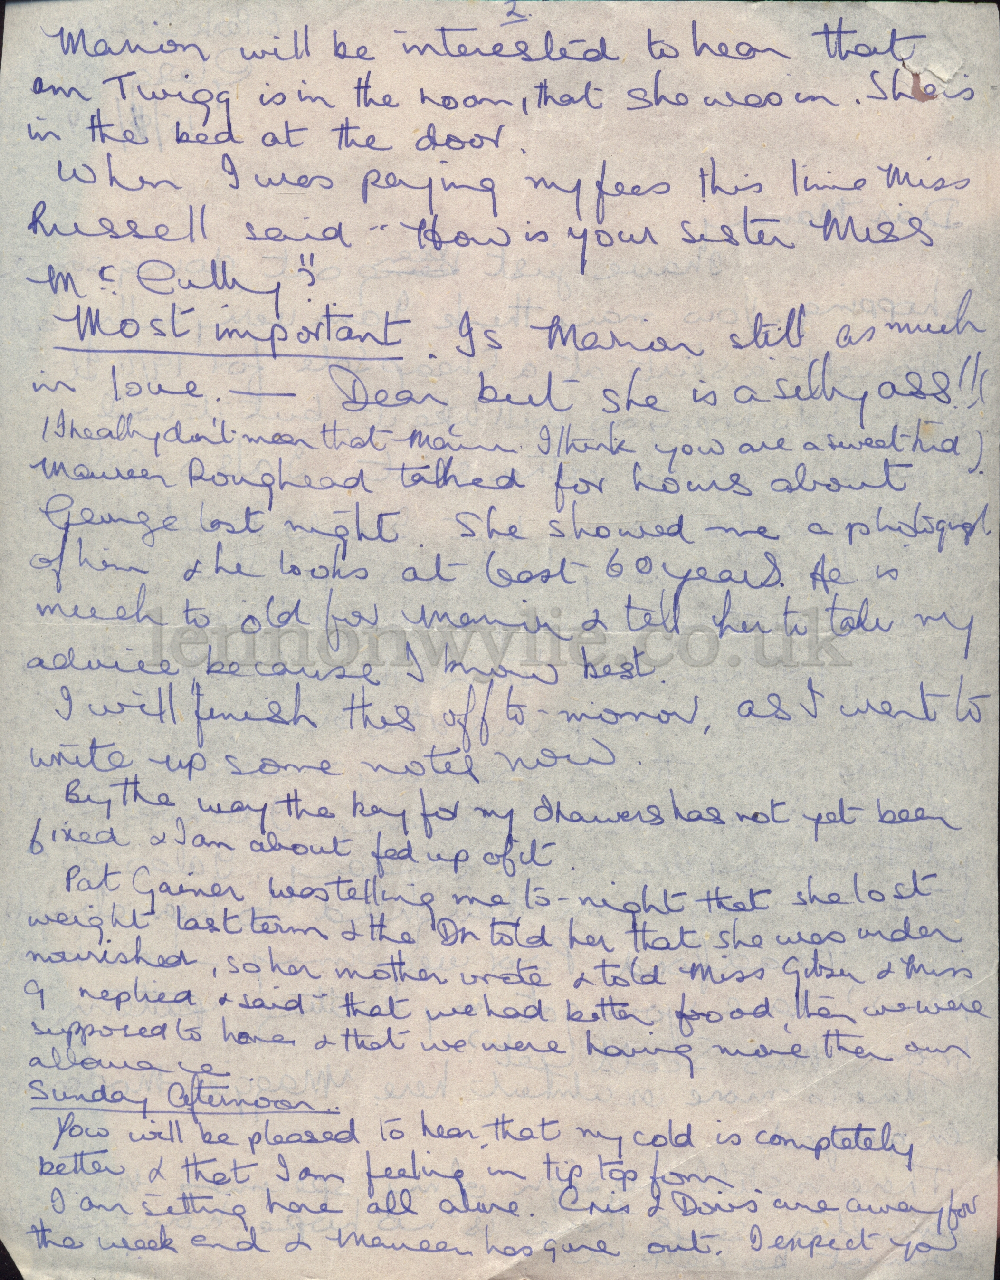 2.
Marion will be interested to hear that
Ann Twigg is in the room, that she was in. She is
in the bed at the door.
When I was paying my fees this time Miss
Russell said "How is your sister Miss
Mc Cully"?
Most important. Is Marion still as much
in love. — Dear but she is a silly ass!!!
(I really don't mean that Marion. I think you are a sweet kid).
Maureen Roughead talked for hours about
George last night. She showed me a photograph
of him & he looks at least 60 years. He is
much to old for Marion & tell her to take my
advice because I know best.
lennonwylie.co.uk
I will finish this off to-morrow, as I want to
write up some notes now.
By the way the key for my drawers has not yet been
fixed & I am about fed up of it.
Pat Gainer was telling me to-night that she lost
weight last term & the Dr told her that she was under
nourished, so her mother wrote & told Miss & Miss
G replied & said that we had better food, than we were
supposed to have & that we were having more than our
allowance
Sunday Afternoon..
You will be pleased to hear that my cold is completely
better & that I am feeling in tip top form
I am sitting here all alone. Cris & Doris are away for
the week end & Maureen has gone out. I expect you